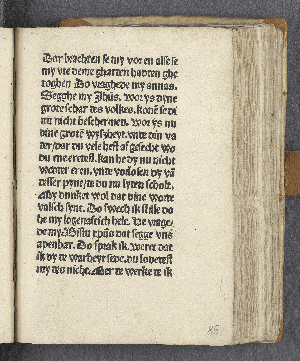 Dar brachten se my vor en alse se
my vte deme gharten hadden ghe
toghen Do vraghede my annas.
Segghe my Jhūs. Wor ys dyne
grote schar des volkes. Konē se di
nu nicht beschermen. Wor ys nu
dine grote wyszheyt. vnde din va
der dar du vele heft af gesecht wo
du ene eretest. kan he dy nu nicht
wedder eren. vnde vorlosen dy vā
desser pyne/de du nu lyden scholt.
My dunket wol dat dine worde
valsch synt. Do sweech ik stille do
he my logenastich helt. He vrage
de my. Bistu xpūs dat segge vns
apenbar. Do sprak ik. Were dat
ik dy de warheyt sede. du louedest
my des nicht. Mer de werke de ik